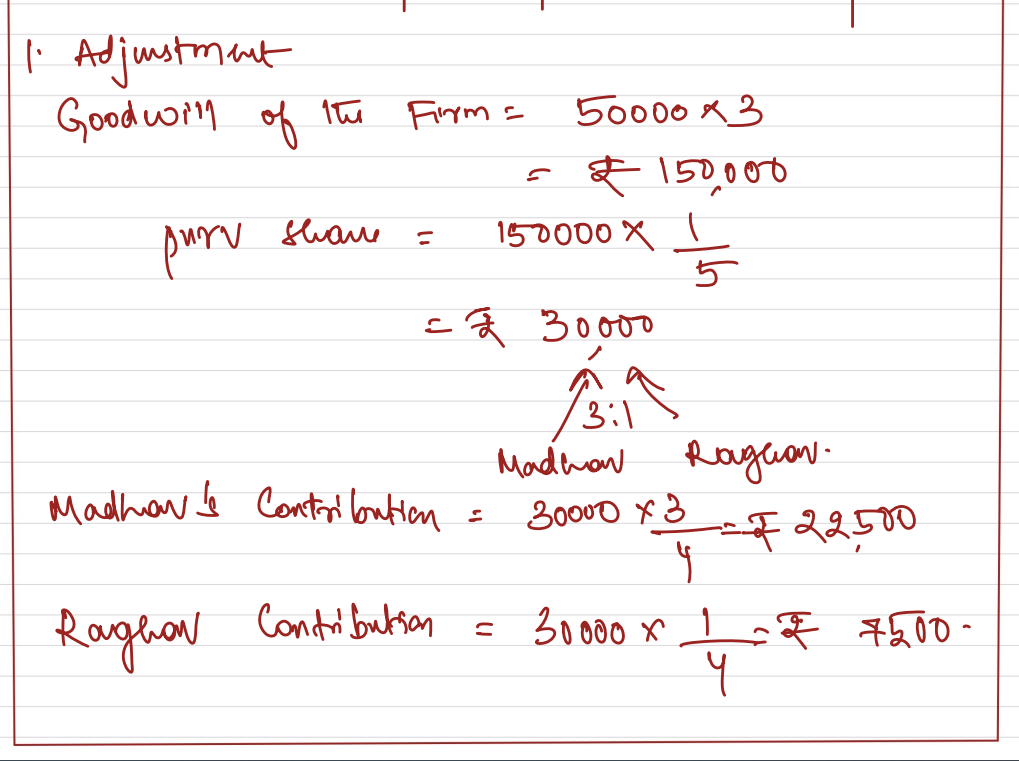 1. Adjustment
Goodwill of the Firm = 50000 × 3
= ₹ 150,000
purv share = 150000 × 1/5
= ₹ 30,000
3:1
Madhav Raghav.
Madhav's Contribution = 30000 × 3/4 = ₹ 22,500
Raghav Contribution = 30000 × 1/4 = ₹ 7500.